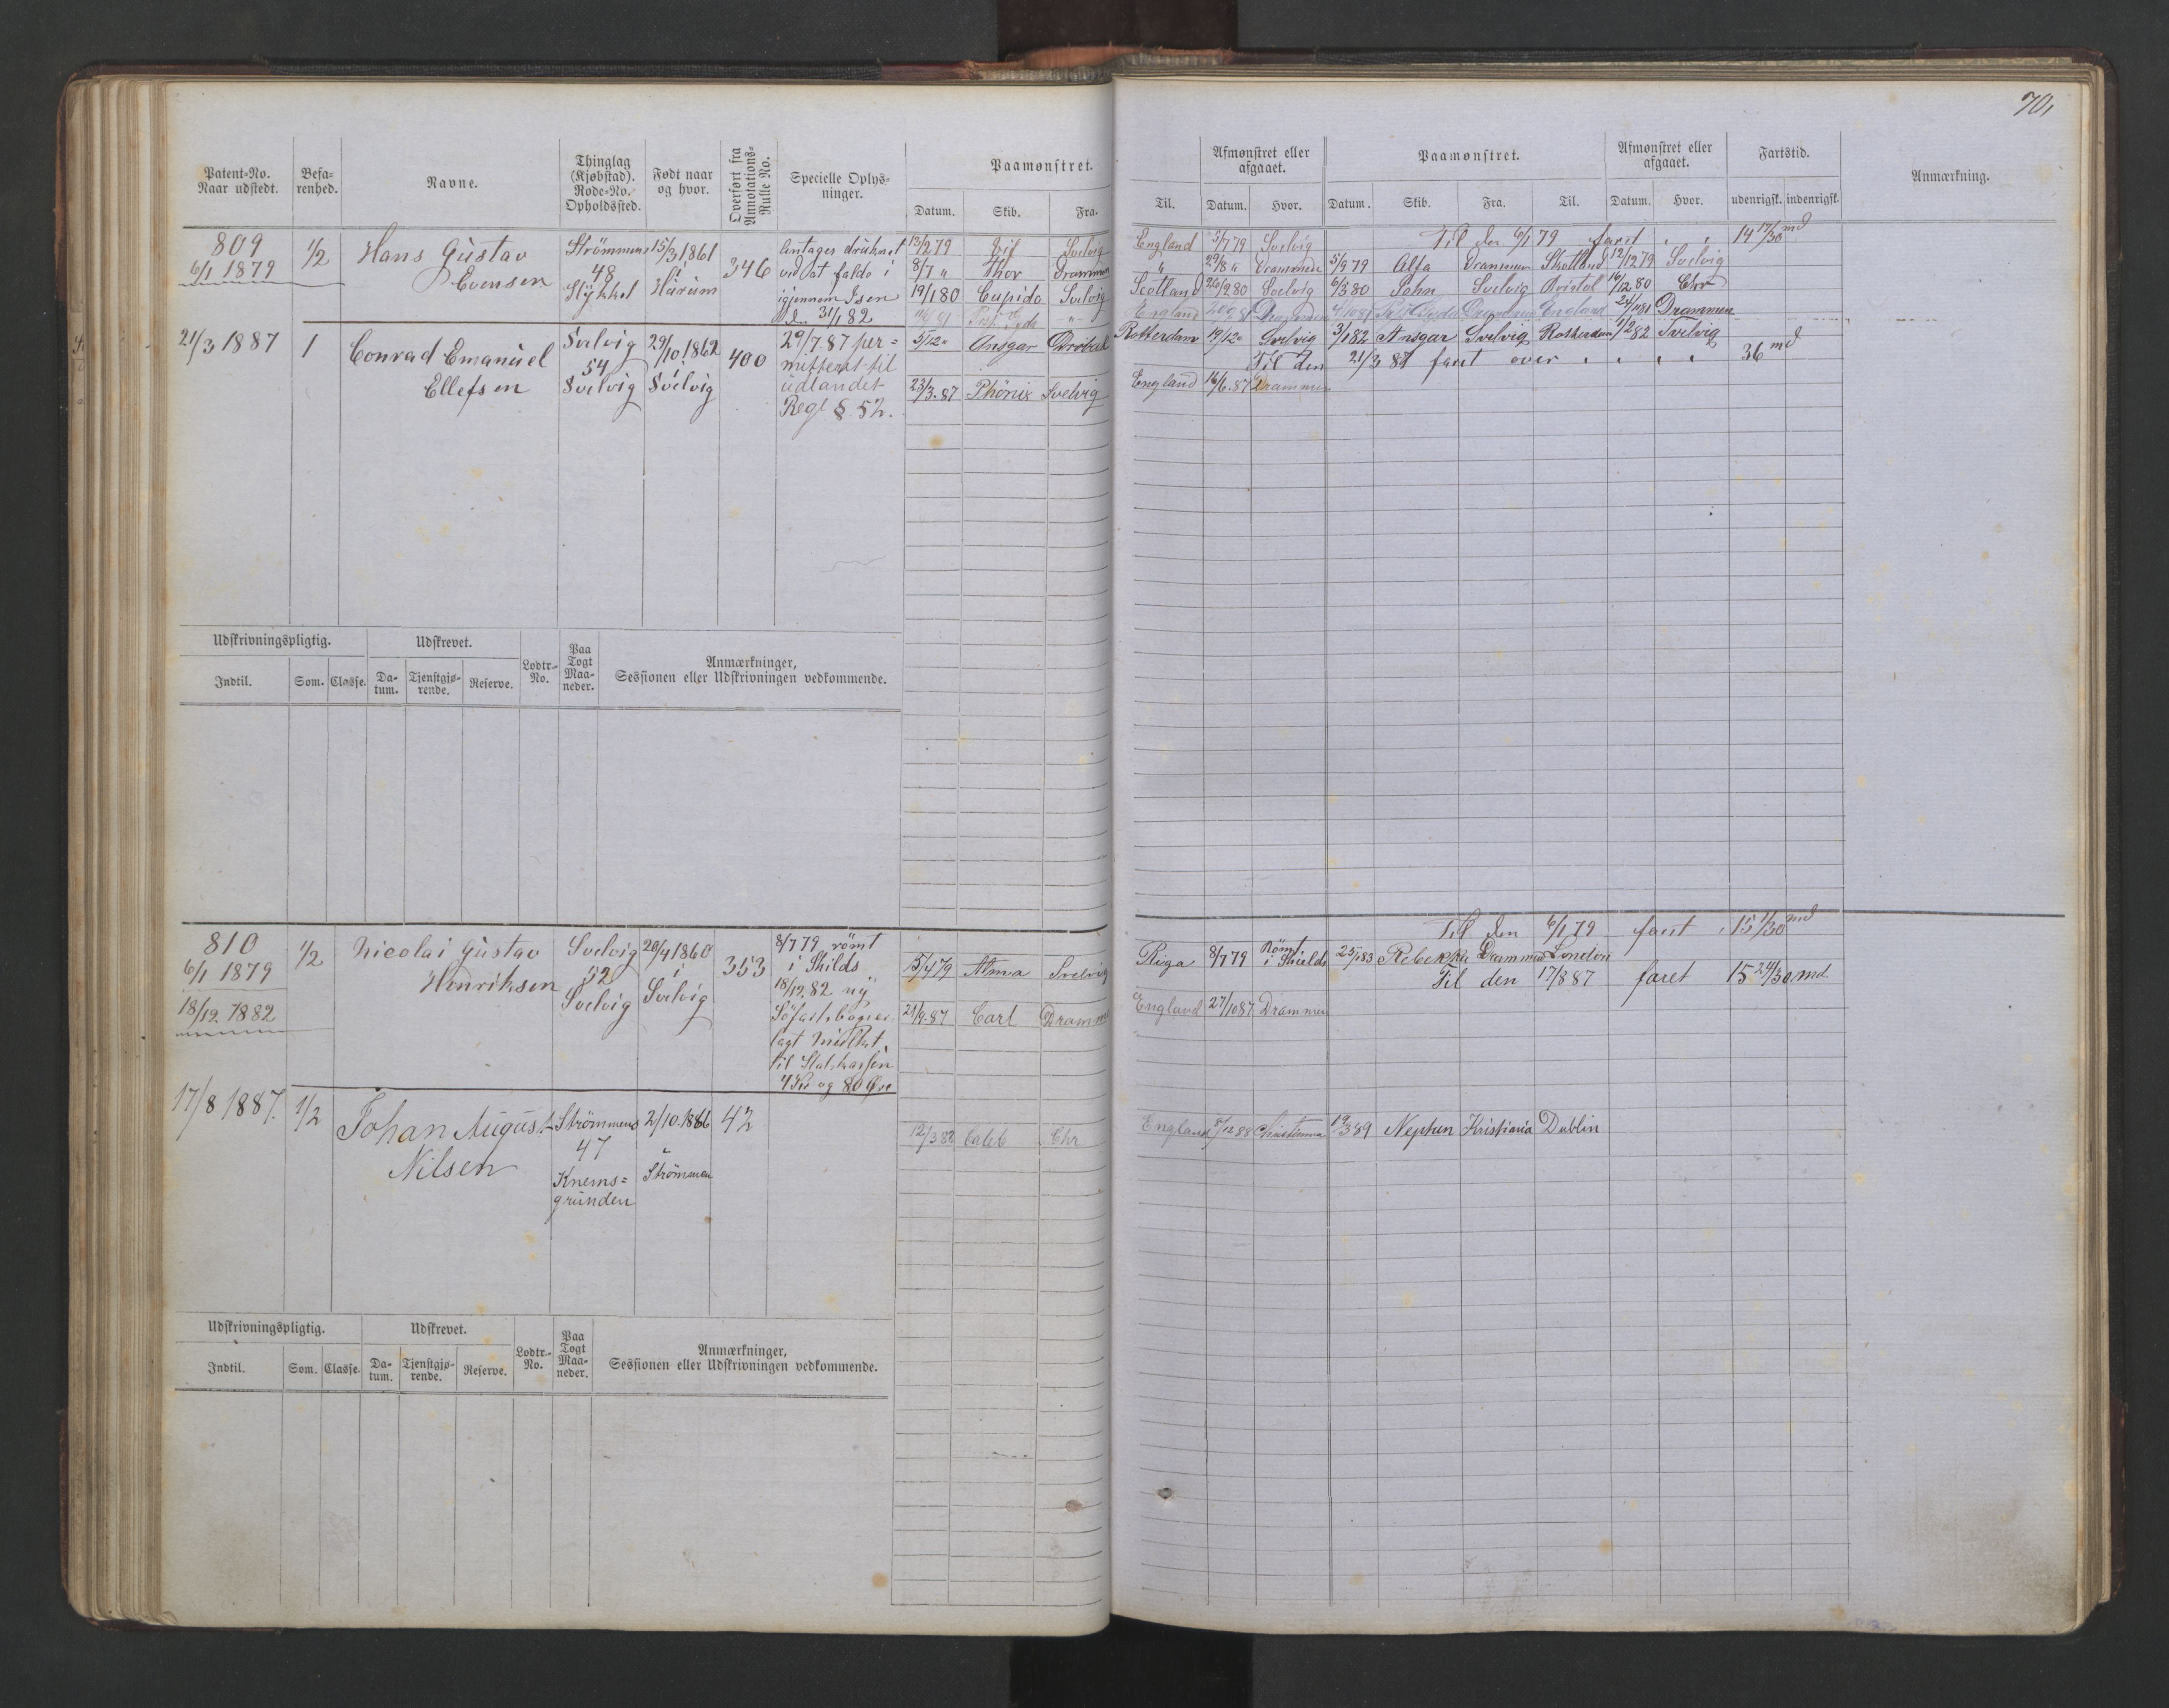 70,
Patent-No.
Naar udstedt.
Befa-
renhed.
Navne.
Thinglag
(Kjøbstad).
Rode-No.
Opholdssted.
Født naar
og hvor.
Overført fra
Annotations-
Rulle No.
Specielle Oplys-
ninger.
Paamønstret.
Datum. Skib. Fra.
Til.
Afmønstret eller
afgaaet.
Datum. Hvor.
Paamønstret.
Datum. Skib. Fra. Til.
Afmønstret eller
afgaaet.
Datum. Hvor.
Fartstid.
udenrigsk. indenrigsk.
Anmærkning.
809
6/1 1879
1/2
Hans Gustav
Evensen
Strömmens
48
Stykket
15/3 1861
i
Hurum
346
Antages druknet
ved at falde i
igjennem Isen
d. 31/1 82
13/2 79 Svelvig
8/7 " Thor Drammen
19/1 80 Cupido Svelvig
England 3/7 79 Svelvig Til den 6/1 79 faret " " 14 17/30 md
" 29/8 " Drammen 5/9 79 Alfa Drammen Skotland 12/12 79 Svelvig
Scotland 26/2 80 Svelvig 6/3 80 John Svelvig Bristol 16/12 80 Chr
England Drammen England 24/11 81 Drammen
21/3 1887
1
Conrad Emanuel
Ellefsen
Svelvig
54
Svelvig
29/10 1862
i
Svelvig
400
29/7. 87 per=
mitteret til
udlandet
Regl § 52.
5/12 " Ansgar Dröbak
Rotterdam 19/12 " Svelvig 3/1 82 Ansgar Svelvig Rotterdam 1/2 82 Svelvig
Til den 21/3 87 faret over " " " " 36 md
23/3. 87 Phönix Svelvig
England 16/6. 87 Drammen
Udskrivningspligtig.
Udskrevet.
Indtil. Som. Classe.
Da-
tum.
Tjenstgjø-
rende.
Reserve.
Lodtr.-
No.
Paa
Togt
Maa-
neder.
Anmærkninger,
Sessionen eller Udskrivningen vedkommende.
810
6/1 1879
18/12. 1882
1/2
Nicolai Gustav
Henriksen
Svelvig
52
Svelvig
20/4 1860
i
Svelvig
353
8/7 79 römt
i Shilds
18/12. 82 ny
Söfartsbog
agt Mulkt
til Statskassen
4 Kr og 80 Øre
Til den 6/1 79 faret " 15 1/30 md
5/4 79 Alma Svelvig
Riga 8/7 79 Römt
i Shields
25/1 83 Rebekka Drammen London
Til den 17/8 87 faret 15 24/30 md.
21/9. 87 Carl Drammen
England 27/10 87 Drammen
17/8 1887.
1/2
Johan August
Nilsen
Strömmens
47
Knems=
grunden
2/10. 1866
Strömmen
42
12/3 88 Caleb Chr
England 8/12 88 Christiania 19/3 89 Neptun Kristiania Dublin
Udskrivningspligtig.
Udskrevet.
Indtil. Som. Classe.
Da-
tum.
Tjenstgjø-
rende.
Reserve.
Lodtr.-
No.
Paa
Togt
Maa-
neder.
Anmærkninger,
Sessionen eller Udskrivningen vedkommende.